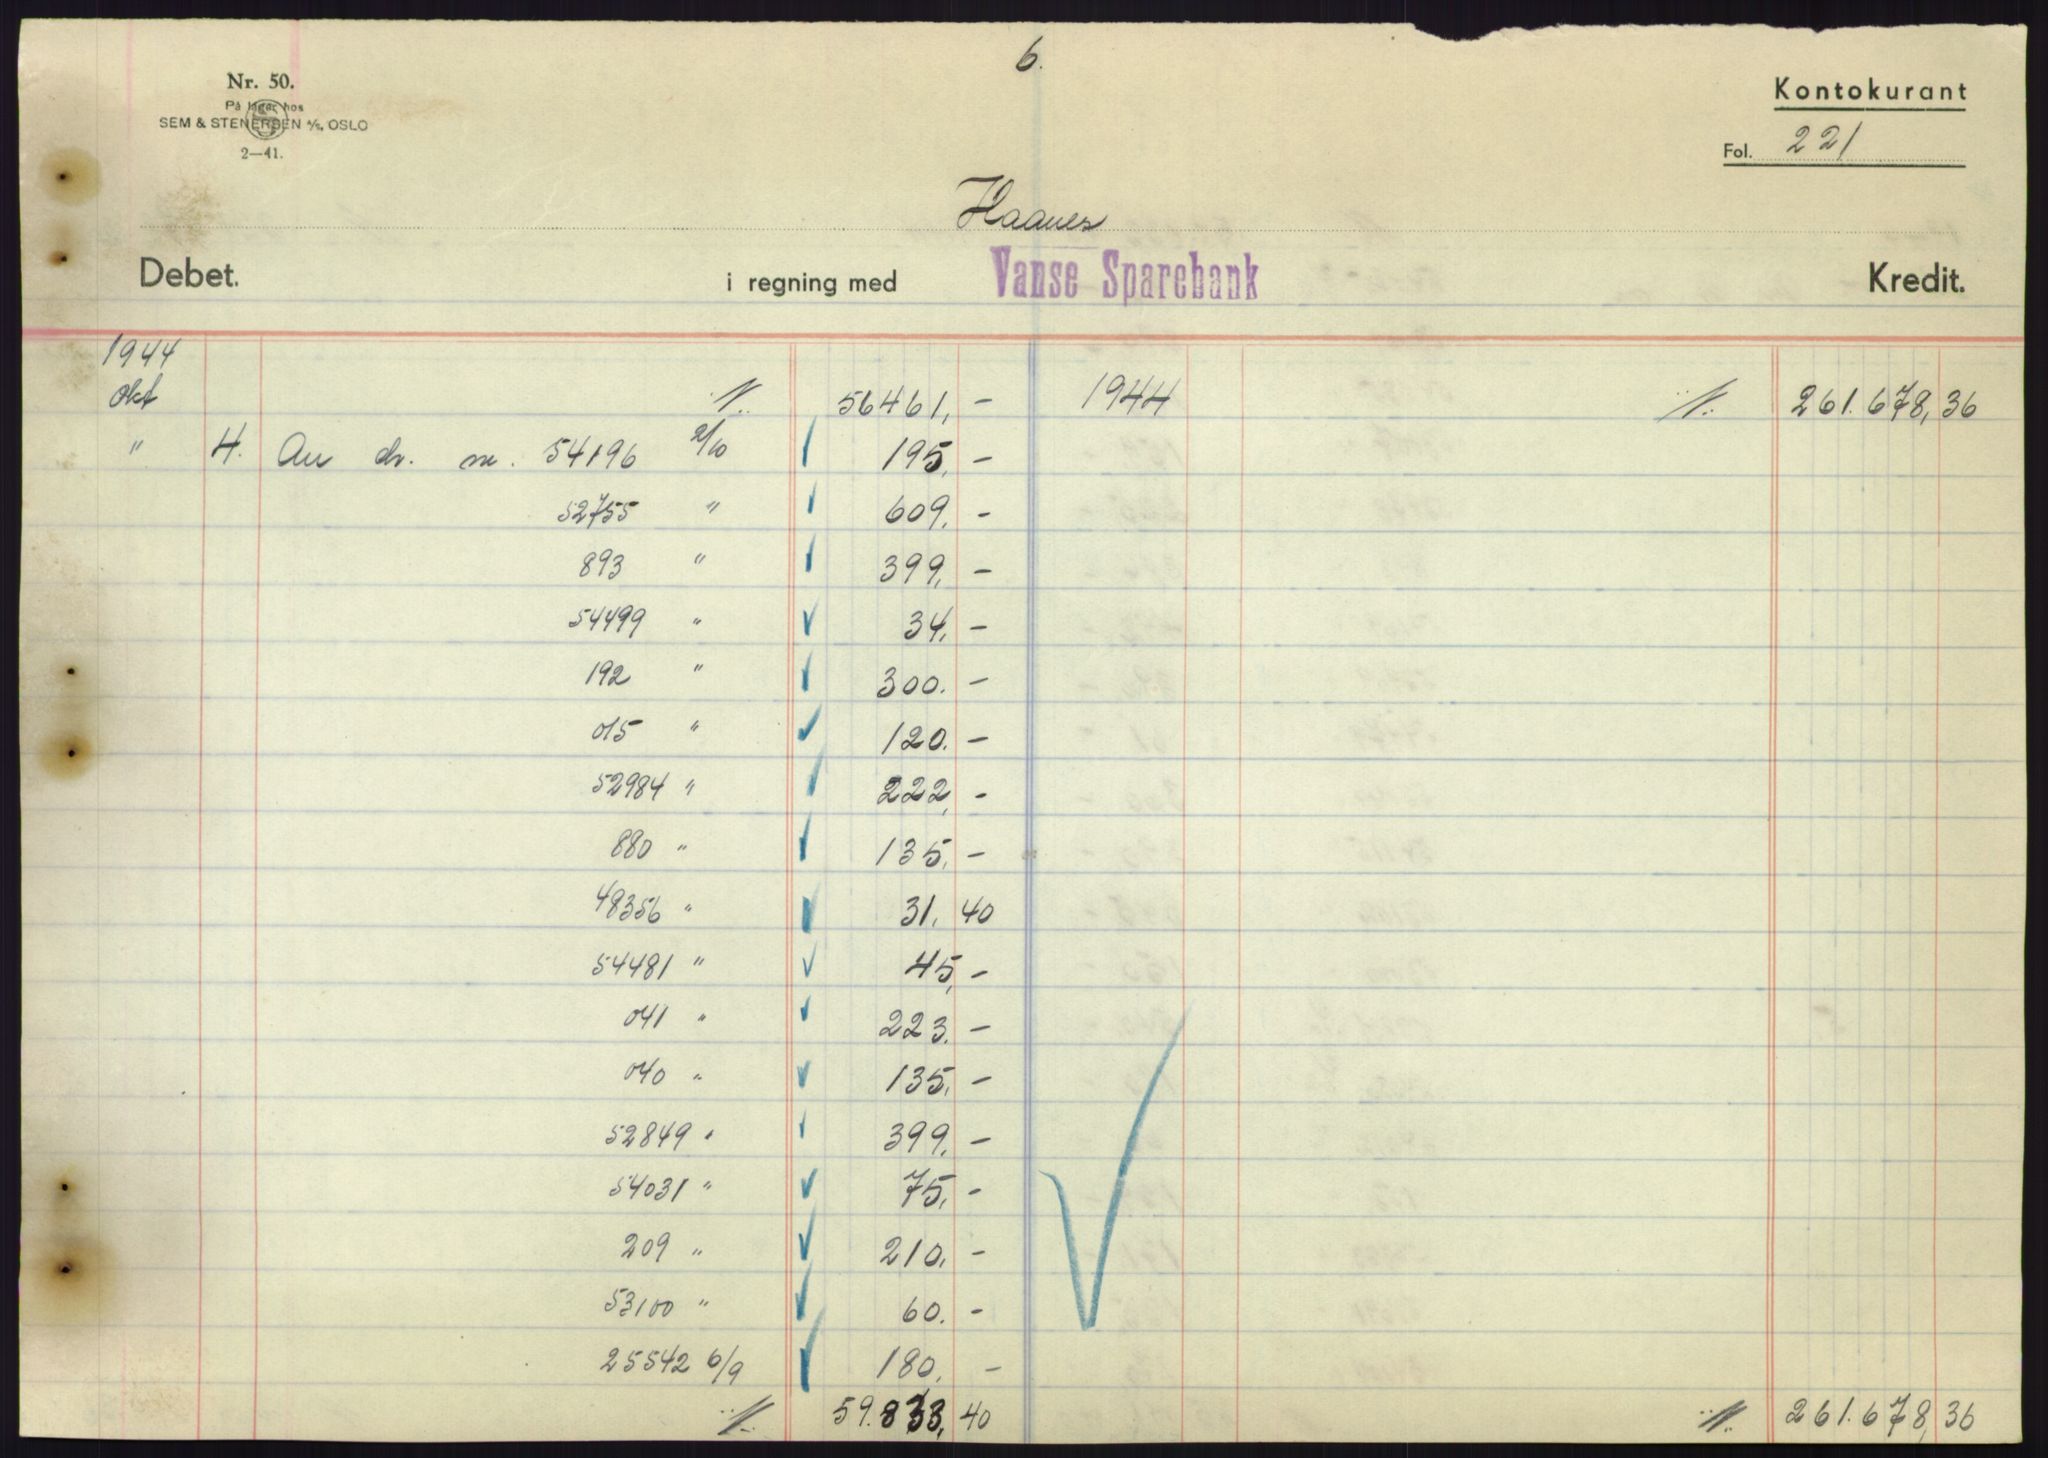 6.
Nr. 50.
På lager hos
SEM & STENERSEN A/S, OSLO
2—41.
Kontokurant
Fol. 221
Haanes
Debet. i regning med Vanse Sparebank Kredit.
1944
Okt 56461,- 1944 261.678,36
" 4. An chr. nr. 54196 2/10 195,-
52755 " 609,-
893 " 399,-
54499 " 34,-
192 " 300.-
015 " 120.-
52984 " 222,-
880 " 135,-
48356 " 31,40
54481 " 45,-
041 " 223.-
040 " 135,-
52849 " 399,-
54031 " 75,-
209 " 210,-
53100 " 60.-
25542 6/9 180,-
59.833,40 261.678,36